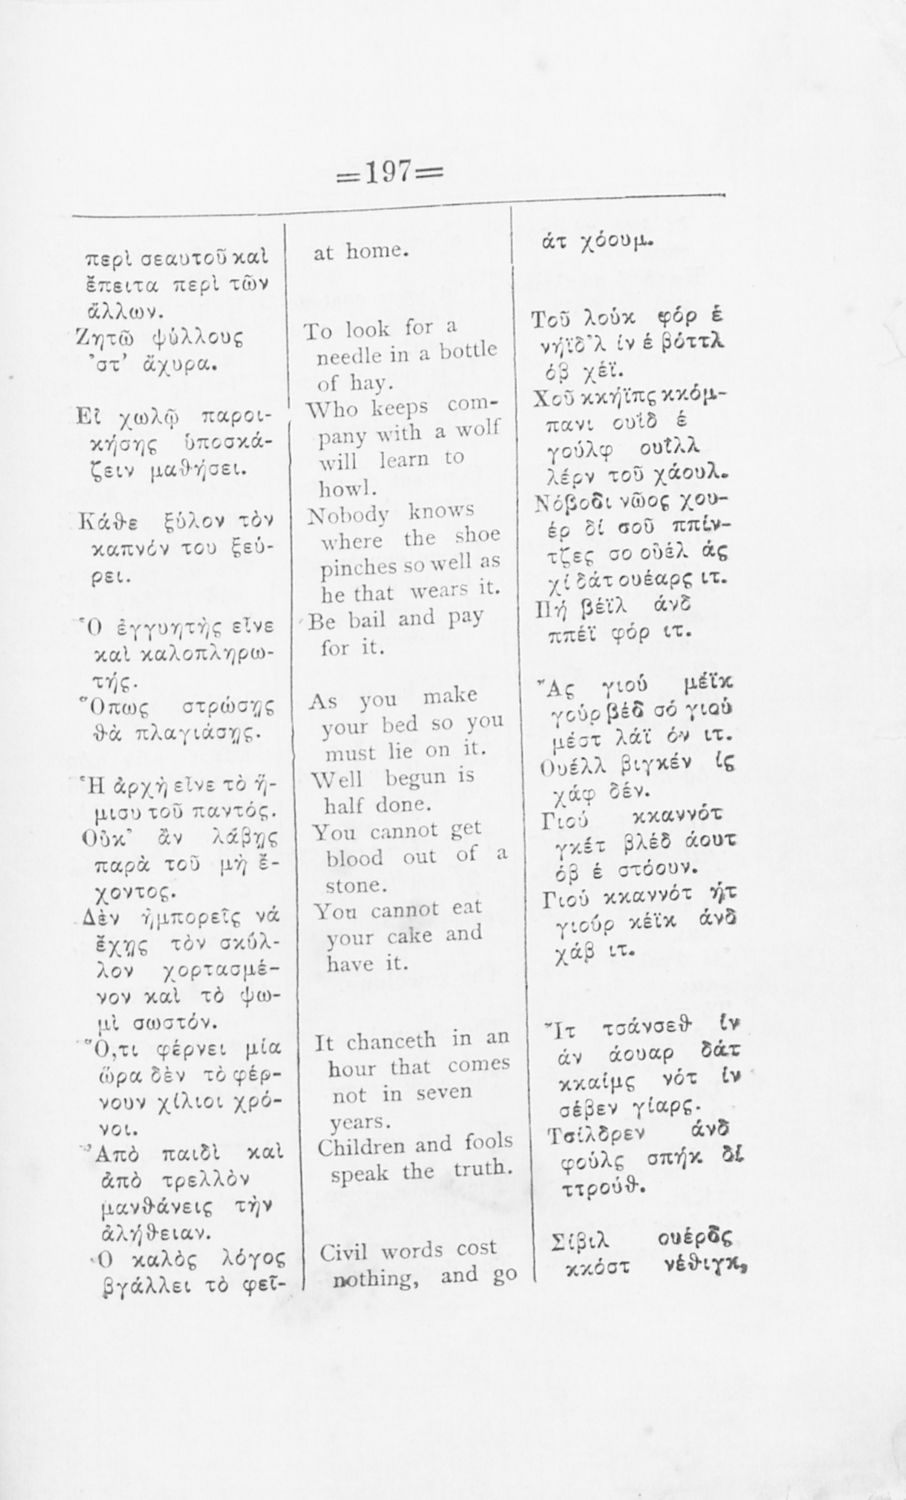 =197=
περὶ σεαυτοῦ καὶ
ἔπειτα περὶ τῶν
ἄλλων.
Ζητῶ ψύλλους
'στ' ἄχυρα.
Εἰ χωλῷ παροι-
κήσῃς ὑποσκά-
ζειν μαθήσει.
Κάθε ξύλον τὸν
καπνόν του ξεύ-
ρει.
Ὁ ἐγγυητὴς εἶνε
καὶ καλοπληρω-
τής.
Ὅπως στρώσῃς
θὰ πλαγιάσῃς.
Ἡ ἀρχὴ εἶνε τὸ ἥ-
μισυ τοῦ παντός.
Οὐκ' ἂν λάβῃς
παρὰ τοῦ μὴ ἔ-
χοντος.
Δὲν ἠμπορεῖς νά
ἔχῃς τὸν σκύλ-
λον χορτασμέ-
νον καὶ τὸ ψω-
μὶ σωστόν.
Ὅ,τι φέρνει μία
ὥρα δὲν τὸ φέρ-
νουν χίλιοι χρό-
νοι.
Ἀπὸ παιδὶ καὶ
ἀπὸ τρελλὸν
μανθάνεις τὴν
ἀλήθειαν.
Ὁ καλὸς λόγος
βγάλλει τὸ φεῖ-
at home.
To look for a
needle in a bottle
of hay.
Who keeps com-
pany with a wolf
will learn to
howl.
Nobody knows
where the shoe
pinches so well as
he that wears it.
Be bail and pay
for it.
As you make
your bed so you
must lie on it.
Well begun is
half done.
You cannot get
blood out of a
stone.
You cannot eat
your cake and
have it.
It chanceth in an
hour that comes
not in seven
years.
Children and fools
speak the truth.
Civil words cost
nothing, and go
άτ χόουμ.
Τοῦ λούκ φόρ ἑ
νήϊδ'λ ίν έ βόττλ
όβ χέϊ.
Χοῦ κκήϊπς κκόμ-
πανι ουϊδ έ
γούλφ ουΐλλ
λέρν τοῦ χάουλ.
Νόβοδι νῶος χου-
έρ δί σοῦ ππίν-
τζες σο οὐέλ άς
χί δάτ ουέαρς ιτ.
Πή βέϊλ άνδ
ππέϊ φόρ ιτ.
Ἄς γιού μέϊκ
γούρ βέδ σό γιού
μέστ λάϊ όν ιτ.
Ουέλλ βιγκέν ίς
χάφ δέν.
Γιού κκαννότ
γκέτ βλέδ άουτ
όβ έ στόουν.
Γιού κκαννότ ήτ
γιούρ κέϊκ άνδ
χάβ ιτ.
Ἴτ τσάνσεθ ίν
άν άουαρ δάτ
κκαίμς νότ ίν
σέβεν γίαρς.
Τσίλδρεν άνδ
φούλς σπήκ δί
ττρούθ.
Σίβιλ ουέρδς
κκόστ νέθιγκ,